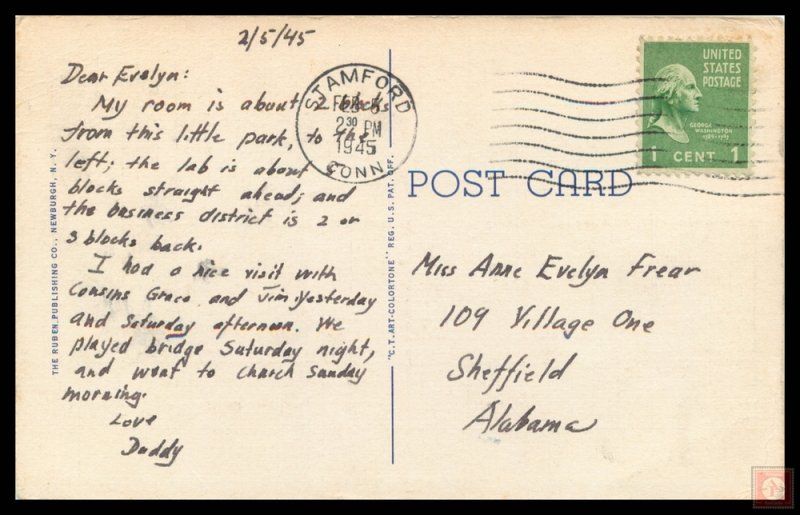 2/5/45
Dear Evelyn:
My room is about 2 blocks
from this little park, to the
left; the lab is about
blocks straight ahead; and
the business district is 2 or
3 blocks back.
I had a nice visit with
Cousins Grace and Jim Yesterday
and Saturday afternoon. We
played bridge Saturday night,
and went to church Sunday
morning.
Love
Daddy
THE RUBEN PUBLISHING CO., NEWBURGH, N. Y.
"C.T. ART-COLORTONE" REG. U.S. PAT. OFF.
STAMFORD
FEB 5
2 30 PM
1945
CONN.
UNITED
STATES
POSTAGE
GEORGE
WASHINGTON
1 CENT 1
POST CARD
Miss Anne Evelyn Frear
109 Village One
Sheffield
Alabama